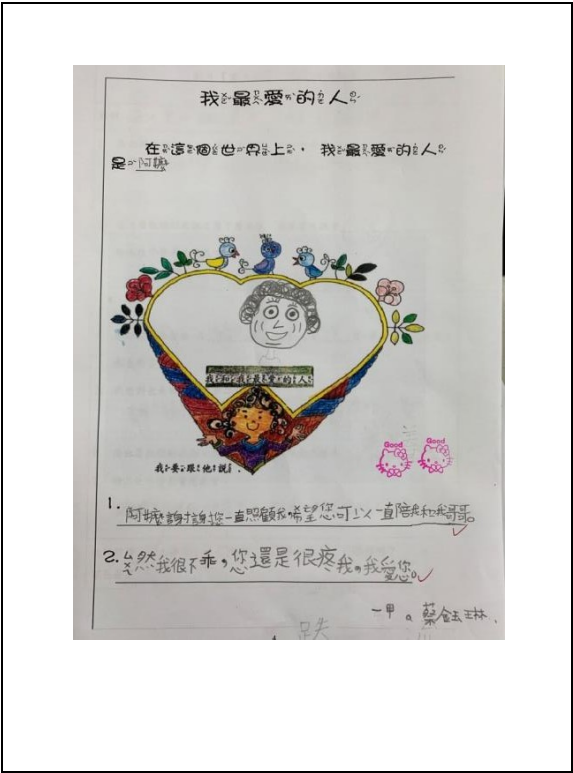 我最愛的人
在這個世界上，我最愛的人
是阿嬤
我和我最愛的人
我要跟他說：
Good Good
1. 阿嬤謝謝您一直照顧我，希望您可以一直陪我和我哥哥。
2. ㄙㄨㄟ然我很不乖，您還是很疼我，我愛您。
一甲。蔡鈺琳.
跌